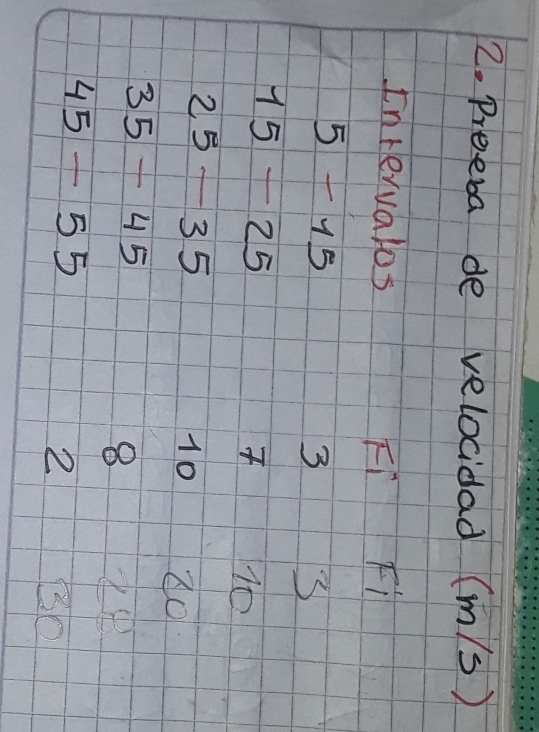 2. Prueba de velocidad (m/s)
Intervalos Fi Fi
5 - 15 3 3
15 - 25 7 10
25 - 35 10 20
35 - 45 8 28
45 - 55 2 30